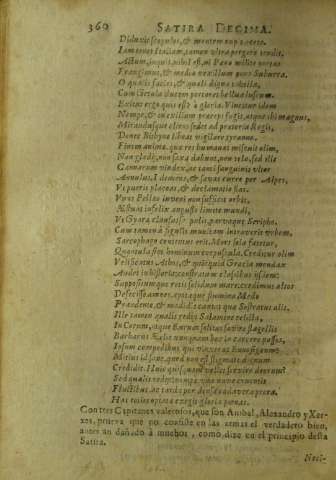 360 SATIRA DECIMA.
Diduxit scopulos, & montem rupit aceto.
Iam tenet Italiam, tamen vltra pergere tendit.
Actum, inquit, nihil est, ni Poeno milite portas
Frangimus, & media vexillum pono Suburra.
O qualis facies, & quali digna tabella,
Cum Getula ducem portaret bellua luscum.
Exitus ergo quis est? ô gloria. Vincitur idem
Nempe, & in exilium praeceps fugit, atque ibi magnus,
Mirandusque cliens sedet ad praetoria Regis,
Donec Bithyno libeat vigilare tyranno.
Finem animae, quae res humanas miscuit olim,
Non gladij, non saxa dabunt, non tela, sed ille
Cannarum vindex, ac tanti sanguinis vltor
Annulus. I demens, & saeuas curre per Alpes,
Vt pueris placeas, & declamatio fias.
Vnus Pellaeo iuueni non sufficit orbis,
AEstuat infelix angusto limite mundi,
Vt Gyarae clausus scopulis, paruaque Seripho.
Cum tamen à figulis munitam intrauerit vrbem,
Sarcophago contentus erit. Mors sola fatetur,
Quantula sint hominum corpuscula. Creditur olim
Velificatus Athos, & quidquid Graecia mendax
Audet in historia; constratum classibus ijsdem;
Suppositumque rotis solidum mare, credimus altos
Defecisse amnes, epotaque flumina Medo
Prandente, & madidis cantat quae Sostratus alis.
Ille tamen qualis rediit Salamine relicta,
In Corum, atque Eurum solitus saeuire flagellis
Barbarus AEolio nunquam hoc in carcere passos,
Ipsum compedibus qui vinxerat Ennosigaeum?
Mitius id sane, quod non & stigmate dignum
Credidit. Huic quisquam vellet seruire deorum?
Sed qualis rediit? nempe vna naue cruentis
Fluctibus, ac tarda per densa cadauera prora.
Has toties optata exegit gloria poenas.
Con tres Capitanes valerosos, que son Anibal, Alexandro y Xer-
xes, prueua que no consiste en las armas el verdadero bien,
antes an dañado à muchos, como dize en el principio desta
Satira.